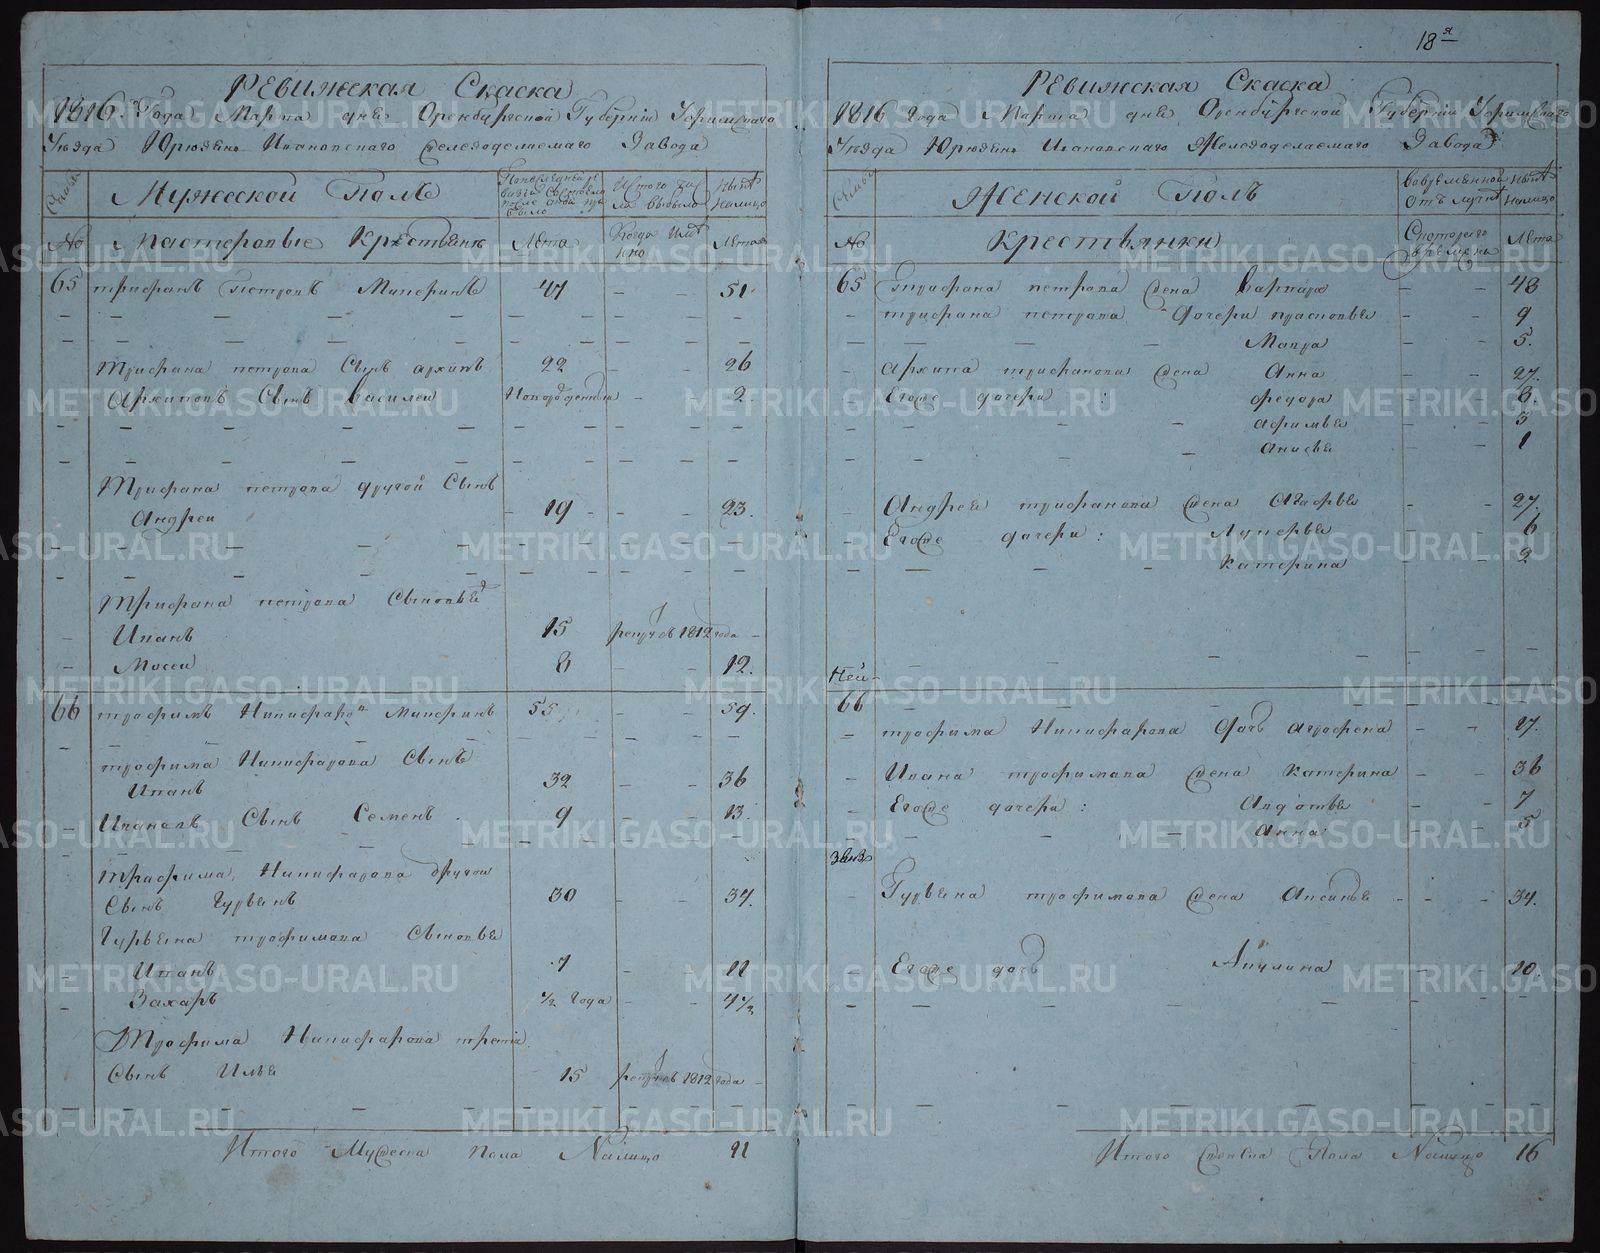 Ревижская Скаска
1816 Года Марта дня Оренбургской Губерніи Уфимскаго
Уѣзда Юрюзень Ивановскаго Железоделаемаго Завода
Мужеской Полъ
Итого
Нынѣ налицо
№
Мастеровые Крестьяне
Лета
Когда имянно
Лета
65 трифанъ Петровъ Микеринъ 47 - - 51
Трифана петрова Сынъ архипъ 22 - - 26
Архиповъ Сынъ василеи Новорожденныи - - 2
Трифана петрова другой Сынъ
Андреи 19 - - 23.
Трифана петрова Сыновья
Иванъ 15 рекрутъ 1812 года -
Мосеи 8 - - 12.
66 трофимъ Никифаровъ Микеринъ 55 - - 59.
трофима Никифарова Сынъ
Иванъ 32 - - 36
Ивановъ Сынъ Семенъ 9 - - 13.
трафима Никифарова другой
Сынъ Гурьенъ 30 - - 34.
Гурьена трофимова Сыновья
Иванъ 7 - - 11
Захаръ 1/2 года - - 4 1/2
Трофима Никифарова трети
Сынъ Илья 15 рекрутъ 1812 года -
Итого Мужеска пола Налицо 11
18я
Ревижская Скаска
1816 Года Марта дня Оренбургской Губерніи Уфимскаго
Уѣзда Юрюзень Ивановскаго Железоделаемаго Завода
Женской Полъ
Вовременной отлучкѣ
Нынѣ налицо
№
Крестьянки
Скоторого времени
Лета
65 Трифана петрова жена варвара - - 48
трифана петрова дочери прасковья - - 9
Мавра - 5.
Архипа трифанова жена Анна - 27.
Егоже дочери: федора - 8.
афимья - 3
анисья - 1
Андрея трифанова жена Агафья - - 27.
Егоже дочери: Лукерья - 6
катерина - - 2
Ней
66
трофима Никифарова дочь аграфена - - 27.
Ивана трофимова жена катерина - - 36
Егоже дочери: Авдотья - - 7
Анна - - 5
Гурьена трофимова жена Аксинья - - - 34.
Егоже дочь Акулина - - 10.
Итого женска Пола Налицо 16
METRIKI.GASO-URAL.RU